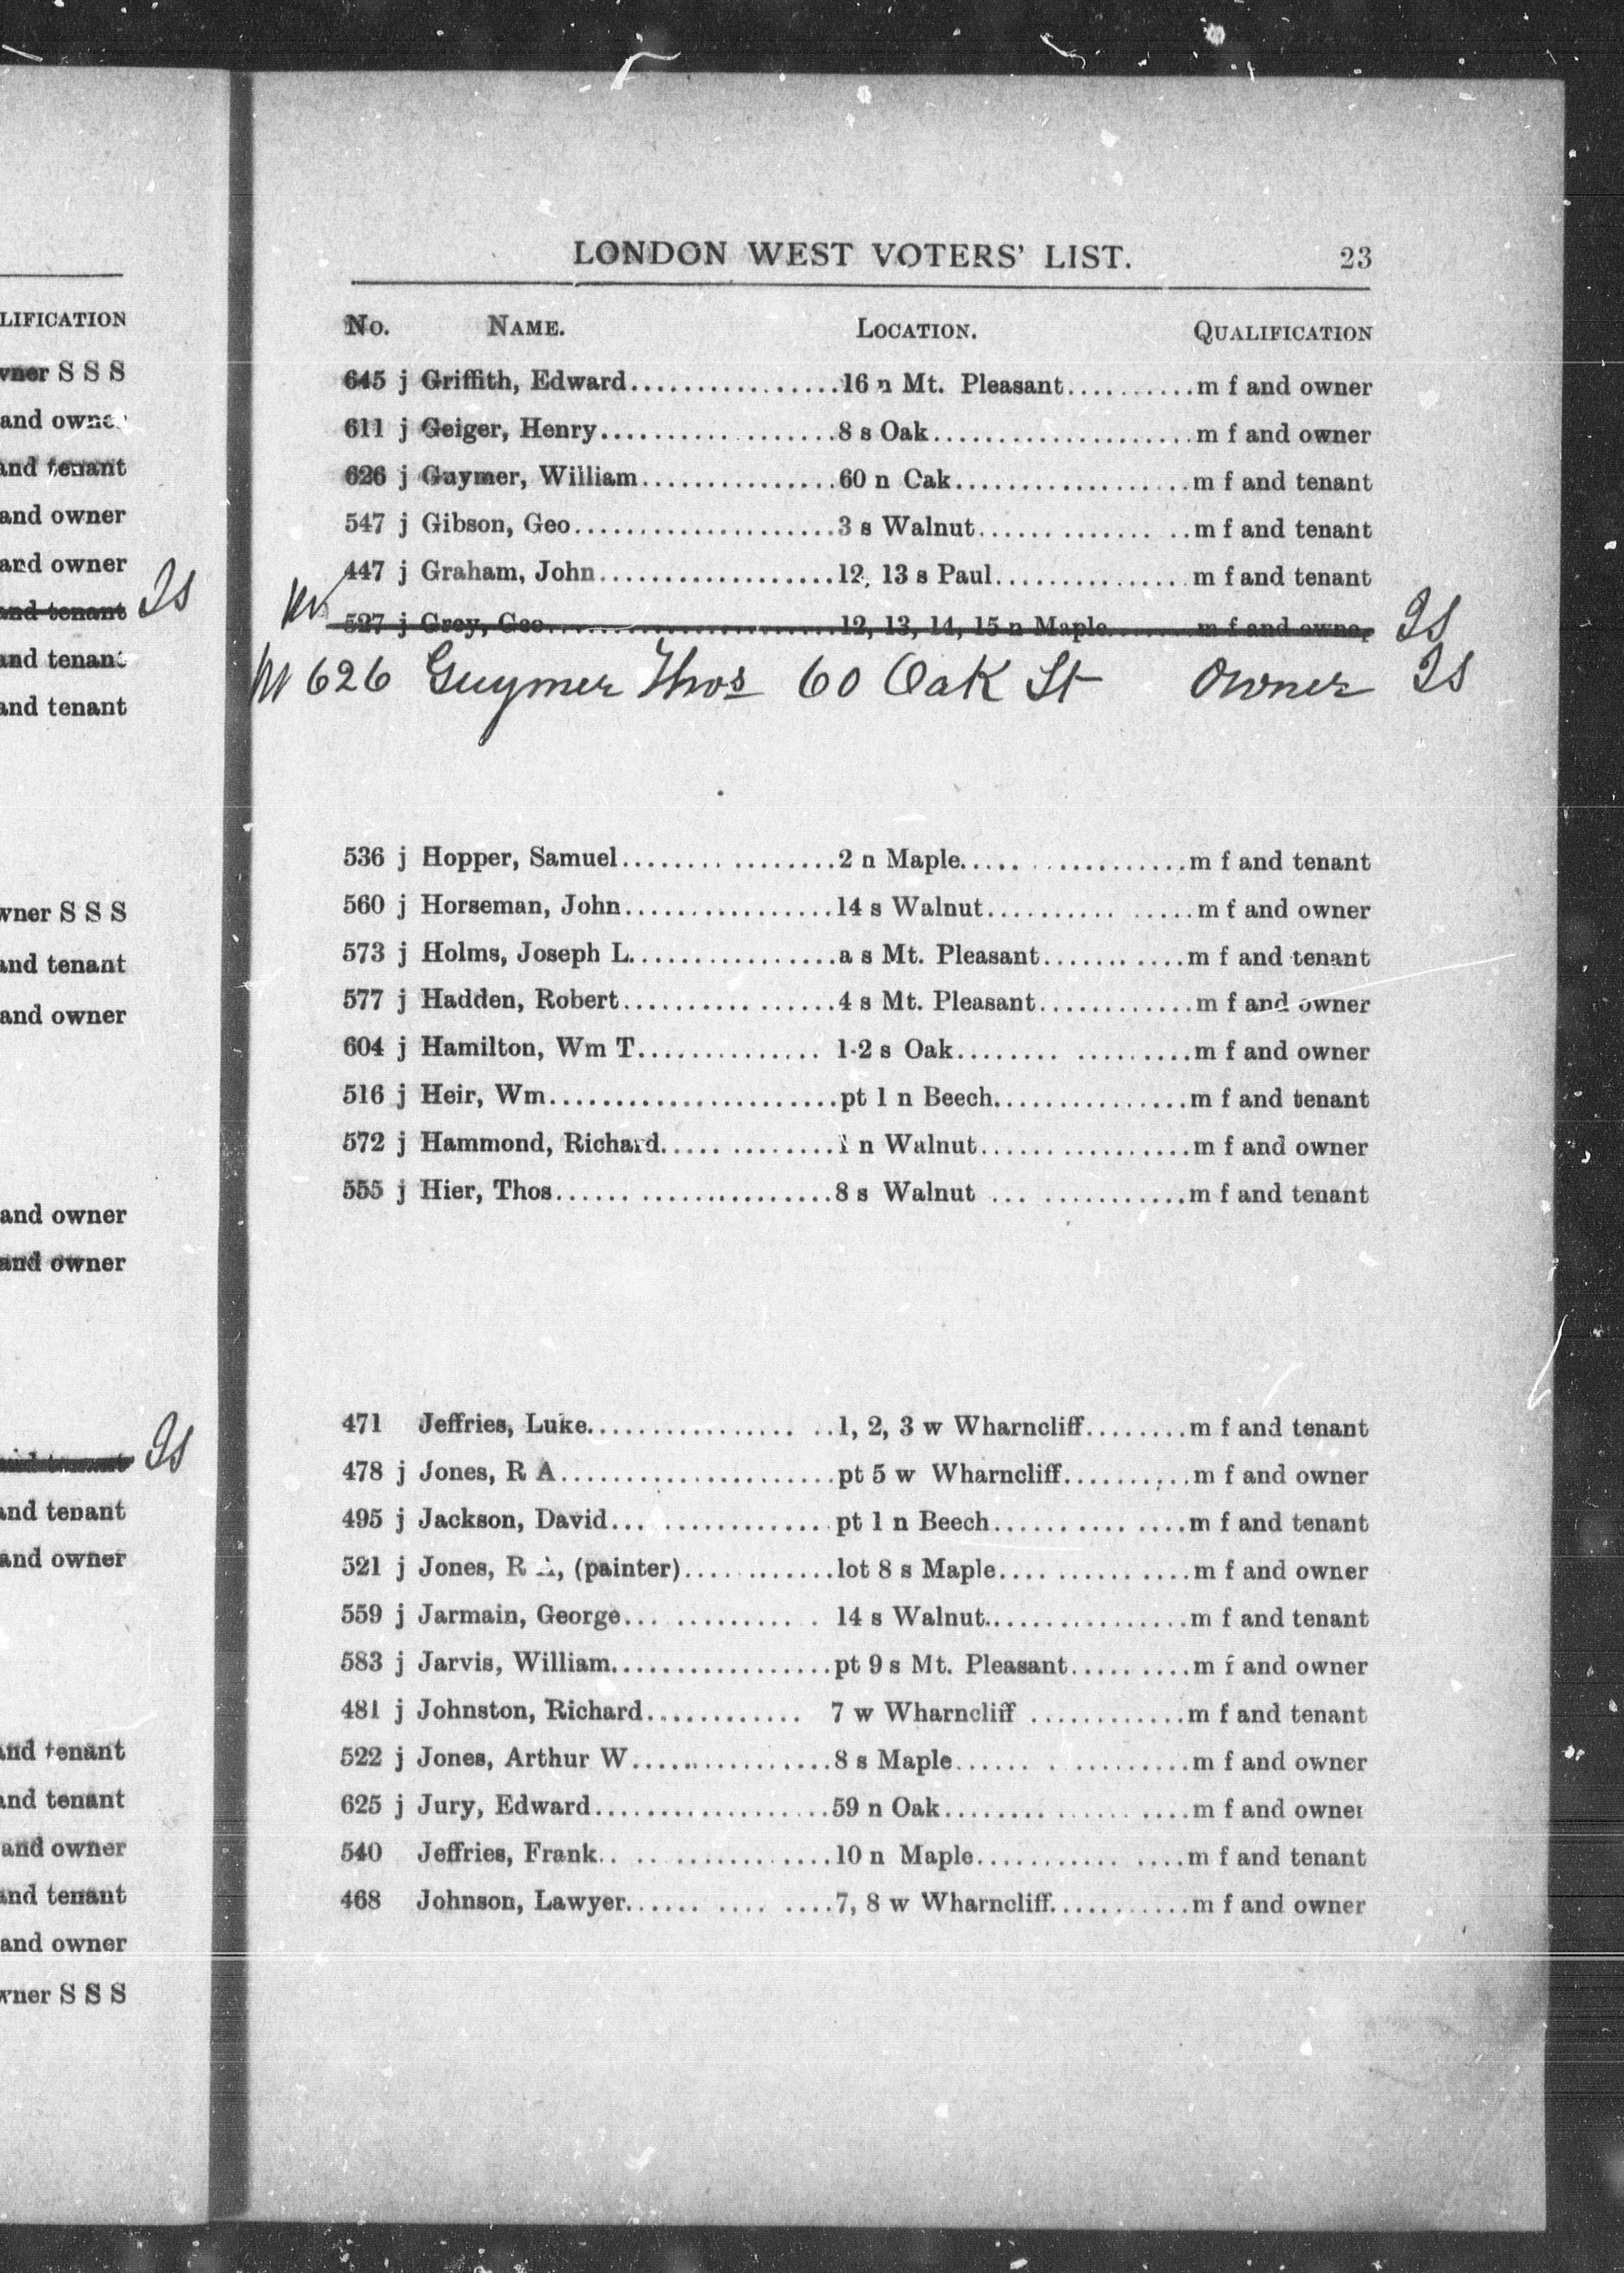 LIFICATION
wner S S S
and owner
and tenant
and owner
and owner
and tenant
and tenant
and tenant
wner S S S
and tenant
and owner
and owner
and owner
and tenant
and tenant
and owner
and tenant
and tenant
and owner
and tenant
and owner
wner S S S
LONDON WEST VOTERS' LIST. 23
No. NAME. LOCATION. QUALIFICATION
645 j Griffith, Edward................16 n Mt. Pleasant..........m f and owner
611 j Geiger, Henry..................8 s Oak....................m f and owner
626 j Guymer, William...............60 n Oak..................m f and tenant
547 j Gibson, Geo......................3 s Walnut................m f and tenant
447 j Graham, John..................12, 13 s Paul...............m f and tenant
527 j Grey, Geo......................12, 13, 14, 15 n Maple.......m f and owner
626 Guymer Thos 60 Oak St Owner
536 j Hopper, Samuel................2 n Maple..................m f and tenant
560 j Horseman, John................14 s Walnut................m f and owner
573 j Holms, Joseph L................a s Mt. Pleasant...........m f and tenant
577 j Hadden, Robert................4 s Mt. Pleasant............m f and owner
604 j Hamilton, Wm T.............. 1-2 s Oak..................m f and owner
516 j Heir, Wm.......................pt 1 n Beech...............m f and tenant
572 j Hammond, Richard.............1 n Walnut.................m f and owner
555 j Hier, Thos......................8 s Walnut ...............m f and tenant
471 Jeffries, Luke..................1, 2, 3 w Wharncliff........m f and tenant
478 j Jones, R A.....................pt 5 w Wharncliff..........m f and owner
495 j Jackson, David.................pt 1 n Beech...............m f and tenant
521 j Jones, R A, (painter)...........lot 8 s Maple...............m f and owner
559 j Jarmain, George.............. 14 s Walnut................m f and tenant
583 j Jarvis, William.................pt 9 s Mt. Pleasant.........m f and owner
481 j Johnston, Richard............ 7 w Wharncliff ............m f and tenant
522 j Jones, Arthur W................8 s Maple.................m f and owner
625 j Jury, Edward...................59 n Oak..................m f and owner
540 Jeffries, Frank.................10 n Maple................m f and tenant
468 Johnson, Lawyer................7, 8 w Wharncliff...........m f and owner